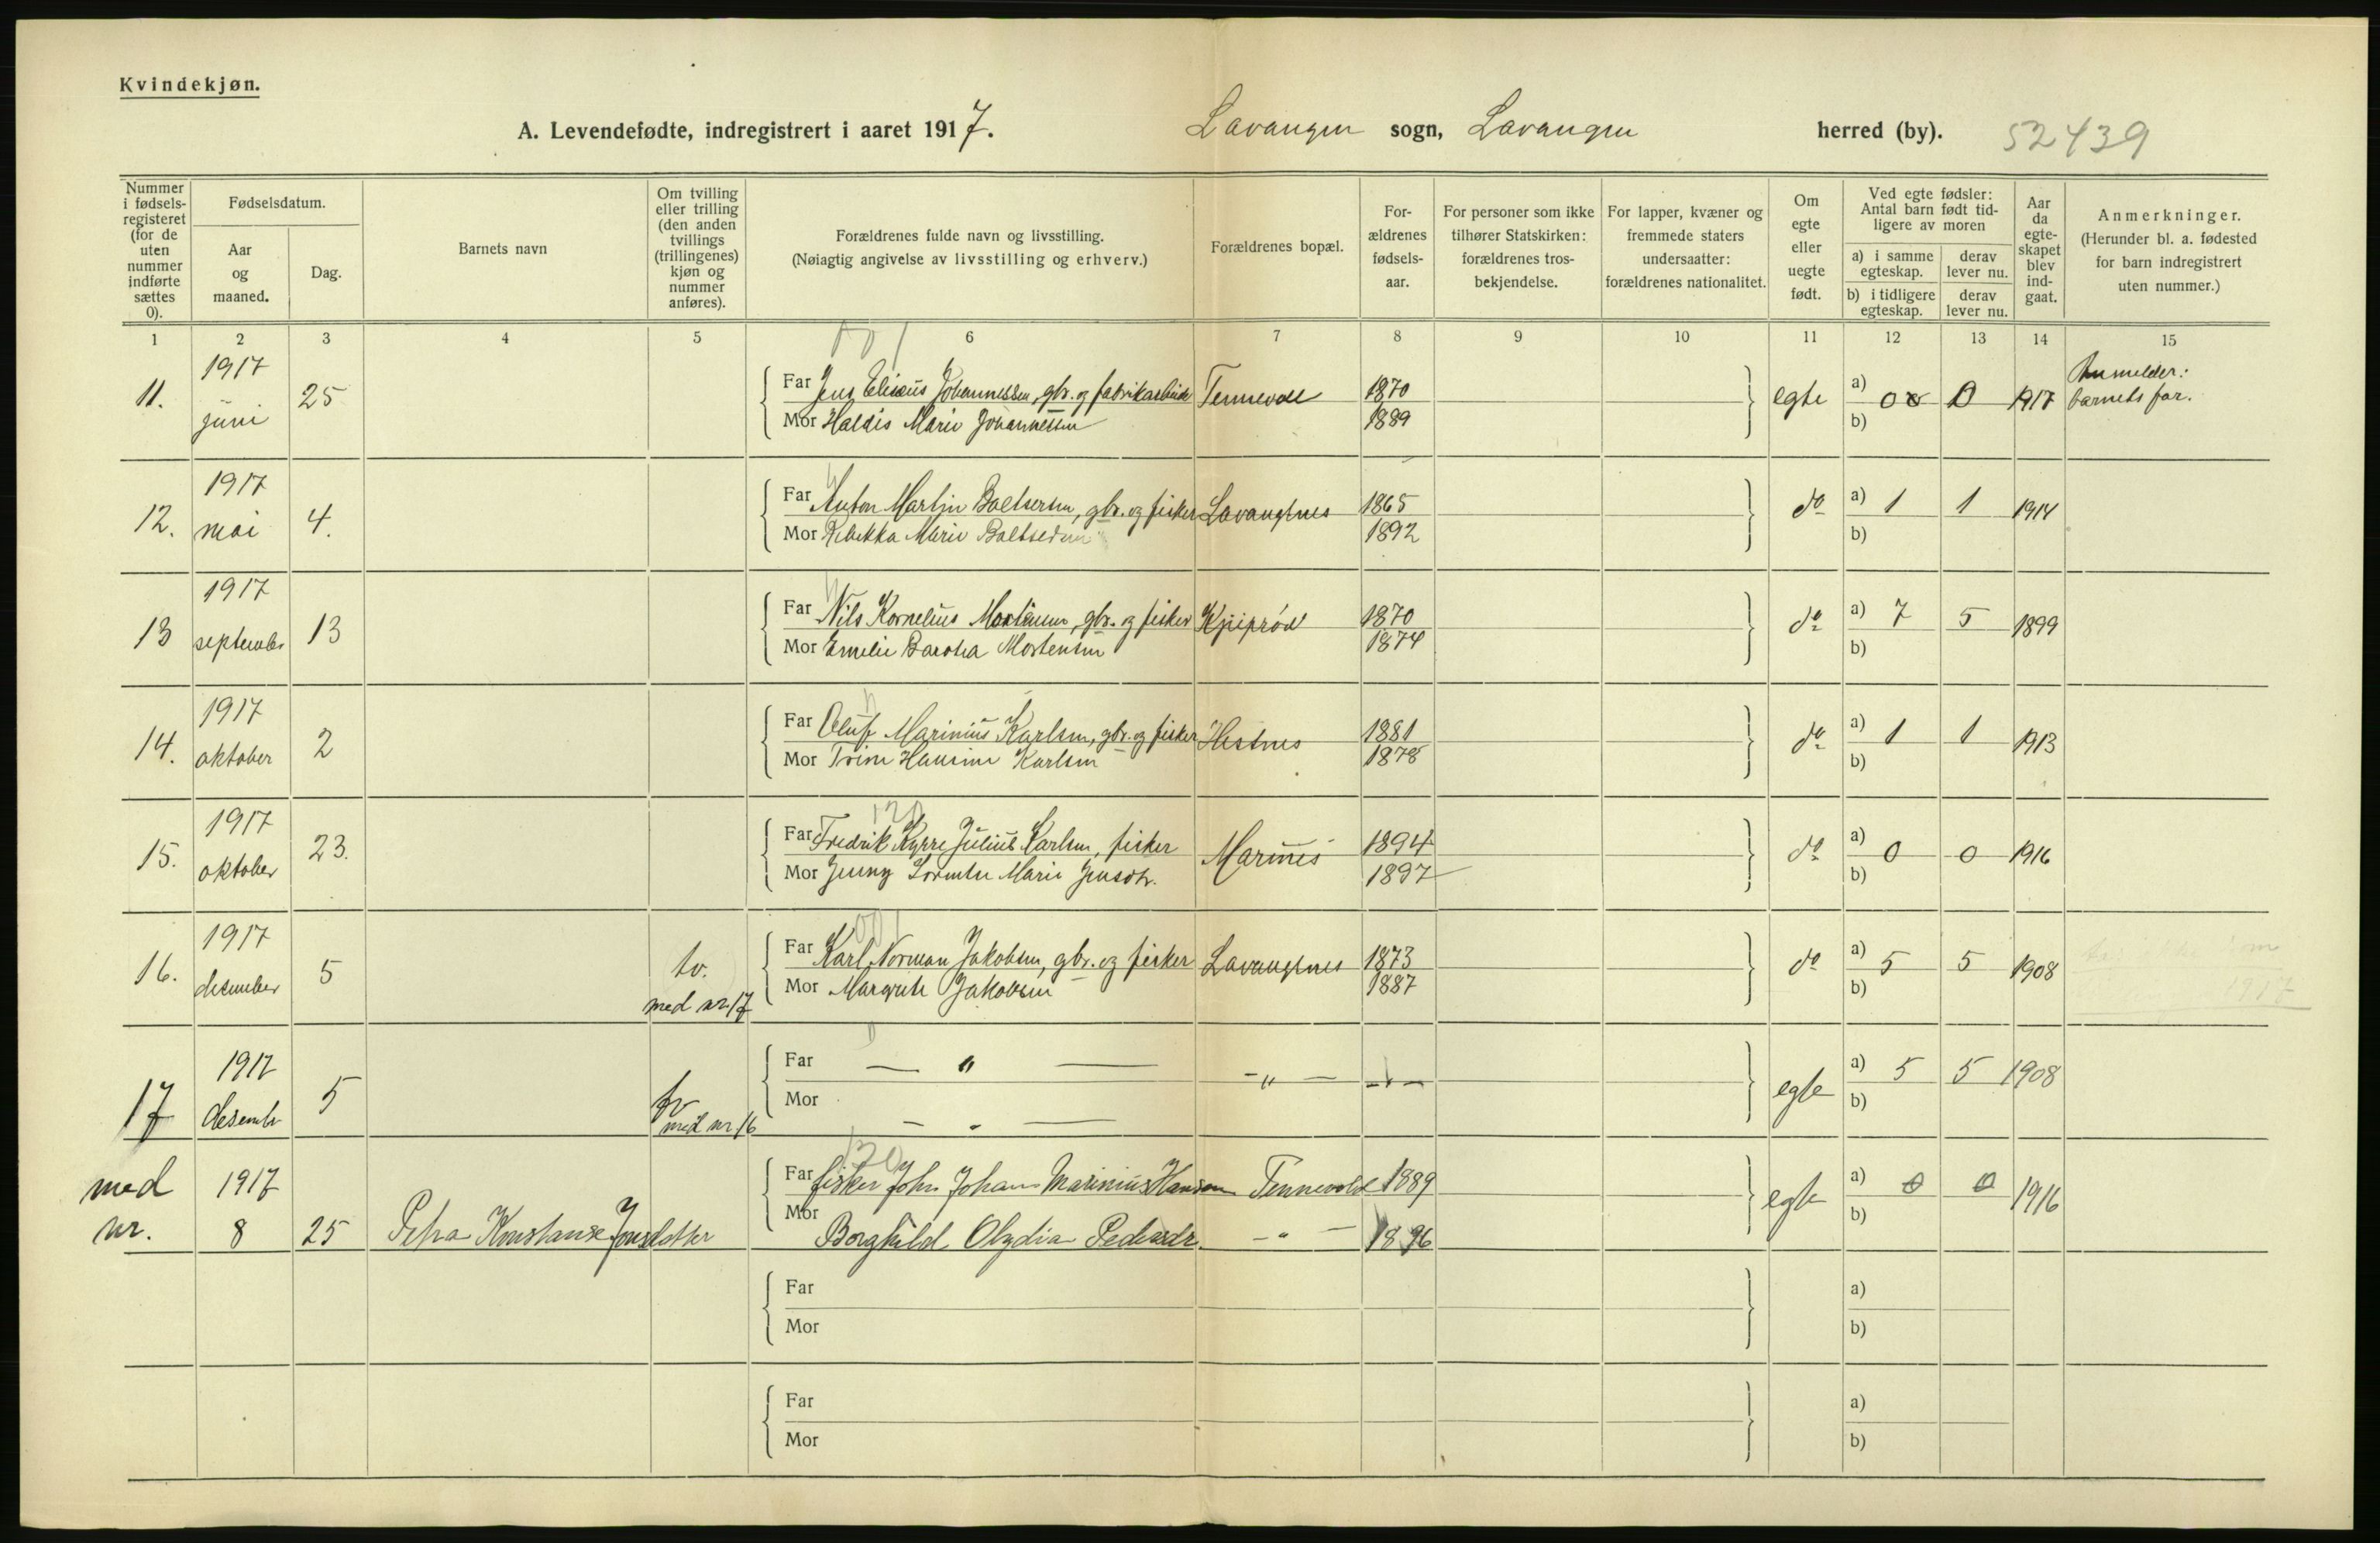 Kvindekjøn.
A. Levendefødte, indregistrert i aaret 1917. Lavangen sogn, Lavangen herred (by). 52439
Nummer i fødsels-registeret (for de uten nummer indførte sættes 0).
Fødselsdatum.
Aar og maaned.
Dag.
Barnets navn
Om tvilling eller trilling (den anden tvillings (trillingenes) kjøn og nummer anføres).
Forældrenes fulde navn og livsstilling.
(Nøiagtig angivelse av livsstilling og erhverv.)
Forældrenes bopæl.
For-ældrenes fødsels-aar.
For personer som ikke tilhører Statskirken: forældrenes tros-bekjendelse.
For lapper, kvæner og fremmede staters undersaatter: forældrenes nationalitet.
Om egte eller uegte født.
Ved egte fødsler: Antal barn født tid-ligere av moren
a) i samme egteskap. derav lever nu.
b) i tidligere egteskap. derav lever nu.
Aar da egte-skapet blev ind-gaat.
Anmerkninger.
(Herunder bl. a. fødested for barn indregistrert uten nummer.)
1 2 3 4 5 6 7 8 9 10 11 12 13 14 15
11. 1917 juni 25 Far Jens Elisæus Johannessen, gbr. og fabrikarbeider Tennevoll 1870 egte a) 0 0 1917 Anmelder: barnets far.
Mor Haldis Marie Johannessen 1889 b)
12. 1917 mai 4. Far Anton Martin Baltsersen, gbr. og fisker Lavangsnes 1865 do a) 1 1 1914
Mor Rebekka Marie Baltsersen 1892 b)
13 1917 september 13 Far Nils Kornelius Mortensen, gbr. og fisker 1870 do a) 7 5 1899
Mor Emilie Mortensen 1874 b)
14. 1917 oktober 2 Far Oluf Marinius Karlsen, gbr. og fisker Hestnes 1881 do a) 1 1 1913
Mor Trine Hansine Karlsen 1878 b)
15. 1917 oktober 23. Far Fredrik Kyrre Julius Karlsen, fisker 1894 do a) 0 0 1916
Mor Jenny Marie Jensdtr. 1897 b)
16. 1917 desember 5 tv. med nr 17 Far Karl Norman Jakobsen, gbr. og fisker Lavangsnes 1873 do a) 5 5 1908
Mor Margrete Jakobsen 1887 b)
17 1917 desembr 5 tv med nr 16 Far — " — - " — - " - egte a) 5 5 1908
Mor — " — b)
med nr. 1917 8 25 Petra Konstanse Jonsdatter Far fisker John Johan Marinius Hansen Tennevold 1889 egte a) 0 0 1916
Mor Borghild Olydia Pedersdr. - " - 1896 b)
Far a)
Mor b)
Far a)
Mor b)